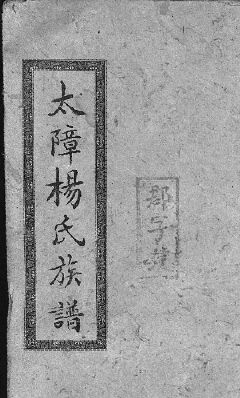 太障楊氏族譜
郡字號